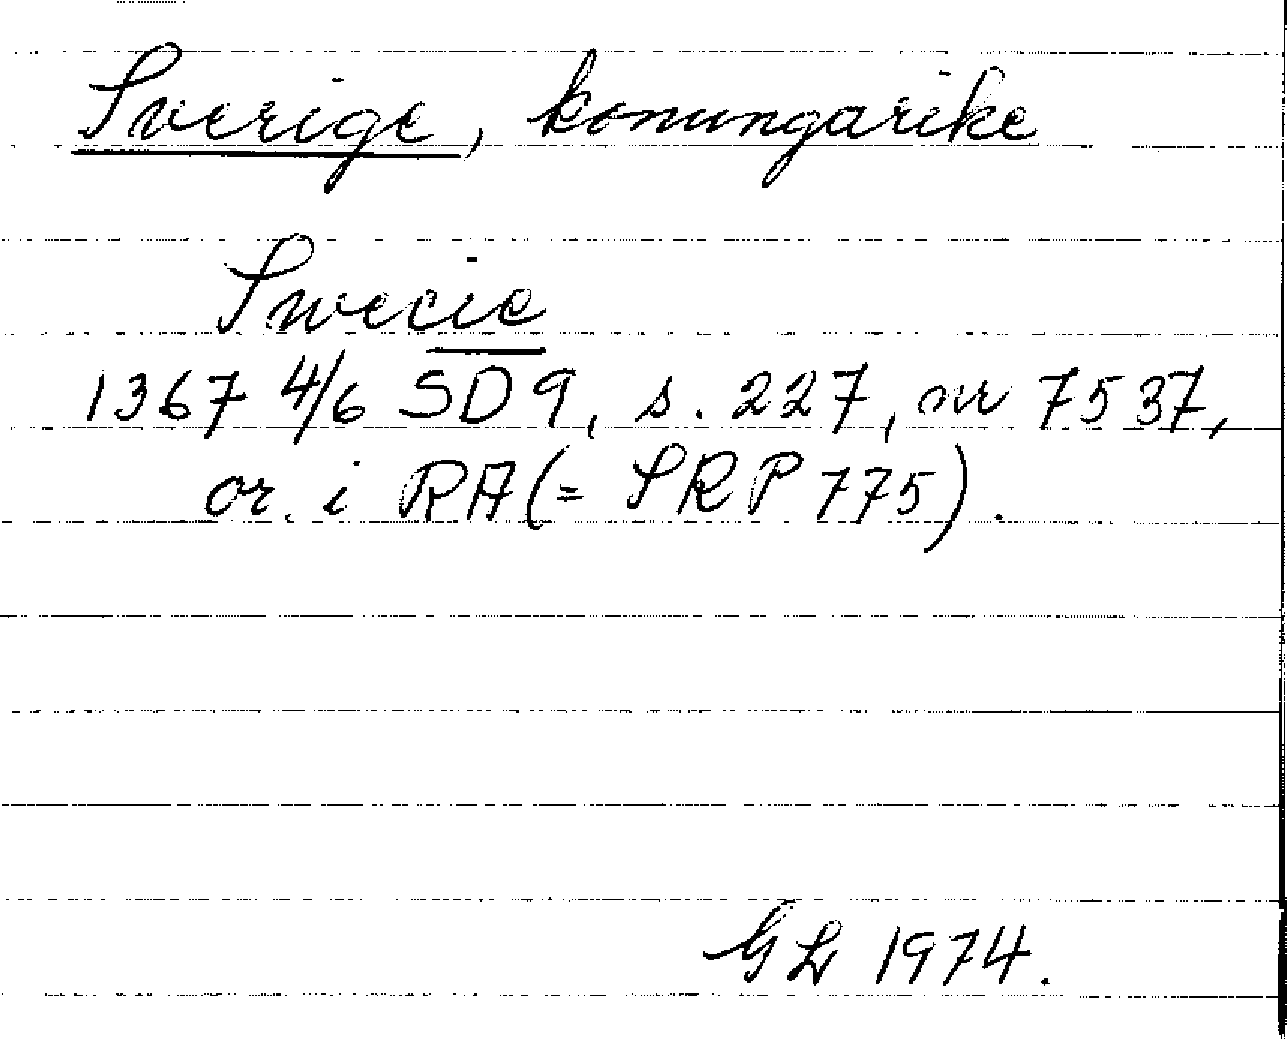 Sverige, konungarike
Swecie
1367 4/6 SD 9, s. 227, nr 7537,
or. i RA (= SRP 775).
GL 1974.